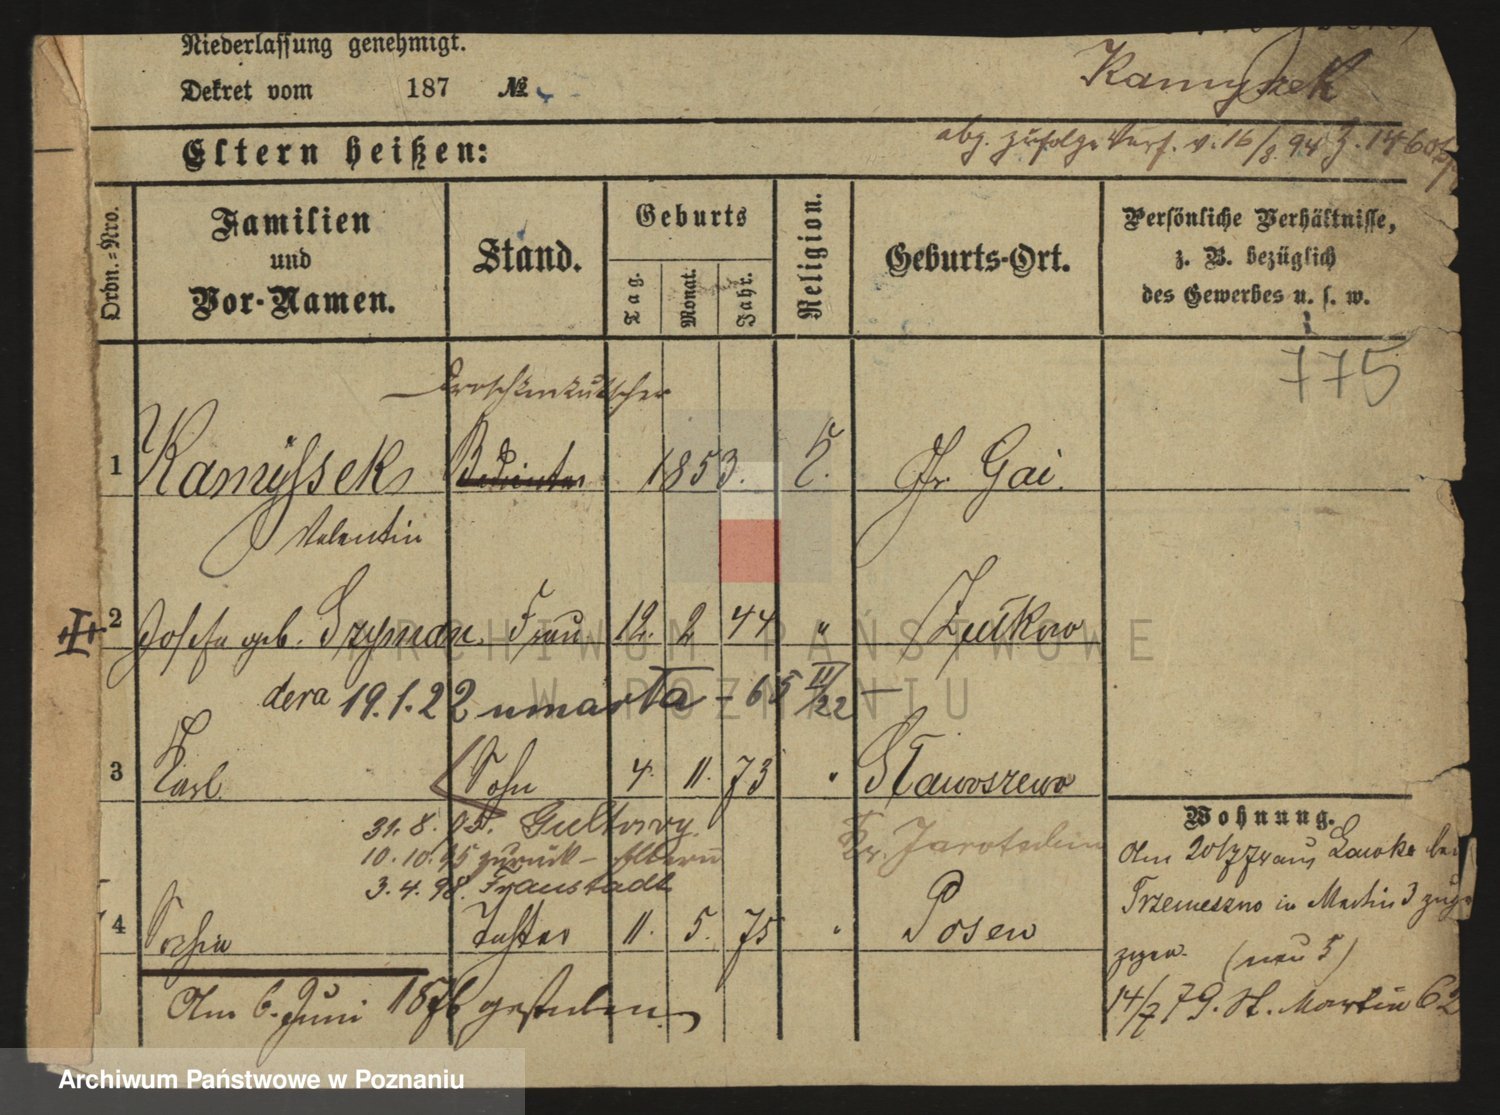 Niederlassung genehmigt.
Dekret vom 187 №
Kamyszek
abg. zufolge Verf. v. 16/8. 94
Eltern heißen:
Ordn.=Nro.
Familien und Vor-Namen.
Stand.
Geburts
Tag.
Monat.
Jahr.
Religion.
Geburts-Ort.
Persönliche Verhältnisse,
z. B. bezüglich
des Gewerbes u. s. w.
775
Droschkenkutscher
1 Kamyssek Bedienter 1853. K. Gr. Gai.
Valentin
2 Josefa geb. Szyman. Frau 12. 2 44 " Zulkow
dera 19.1.22 umarła - 65 II/22 -
3 Karl Sohn 4. 11. 73 " Stawoszewo
31. 8. 95. Gultowy. Kr. Jarotschin
10. 10. 95 zurück - Eltern
3. 4. 98. Fraustadt
4 Sophia Tochter 11. 5. 75 " Posen
Am 6. Juni 1876 gestorben.
Wohnung.
Am 20/7 77 aus bei
Trzemeszno in Martin 3 zuge
zogen. (neu 5)
14/7 79. St. Martin 62
ARCHIWUM PAŃSTWOWE
W POZNANIU
Archiwum Państwowe w Poznaniu